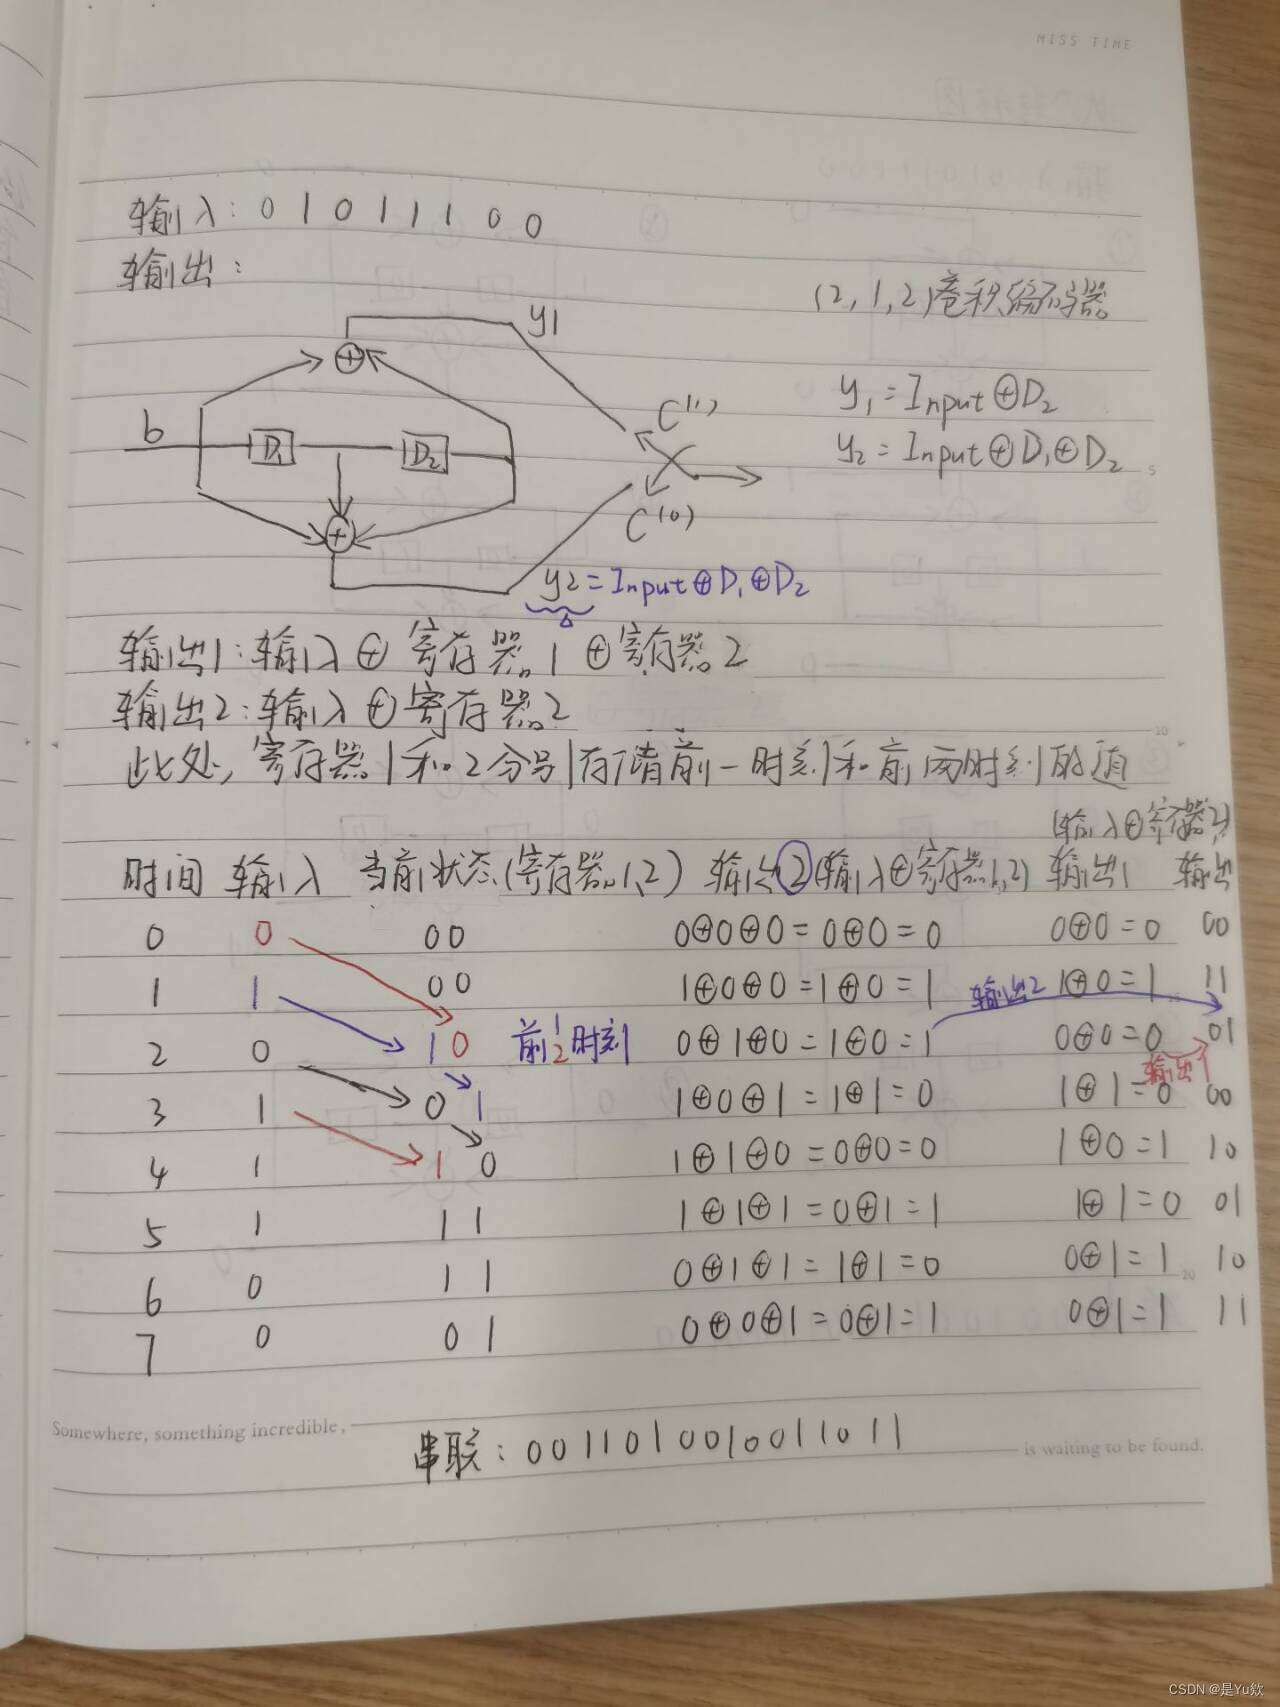 MISS TIME
输入: 0 1 0 1 1 1 0 0
输出:
(2,1,2)卷积编码器
y1
b
D1
D2
C(1)
C(0)
y1 = Input⊕D2
y2 = Input⊕D1⊕D2
5
y2 = Input⊕D1⊕D2
输出1: 输入⊕寄存器1⊕寄存器2
输出2: 输入⊕寄存器2
10
此处, 寄存器1和2分号存储前一时刻和前两时刻的值
(输入⊕寄存器2)
时间 输入 当前状态(寄存器1,2) 输出2(输入⊕寄存器1,2) 输出1 输出
0 0 00 0⊕0⊕0=0⊕0=0 0⊕0=0 00
1 1 00 1⊕0⊕0=1⊕0=1 输出2 1⊕0=1 11
2 0 10 前1/2时刻 0⊕1⊕0=1⊕0=1 0⊕0=0 01
输出1
3 1 01 1⊕0⊕1=1⊕1=0 1⊕1=0 00
4 1 10 1⊕1⊕0=0⊕0=0 1⊕0=1 10
5 1 11 1⊕1⊕1=0⊕1=1 1⊕1=0 01
6 0 11 0⊕1⊕1=1⊕1=0 0⊕1=1 10
20
7 0 01 0⊕0⊕1=0⊕1=1 0⊕1=1 11
Somewhere, something incredible,
串联: 0011010010011011
is waiting to be found.
CSDN @是Yu欸